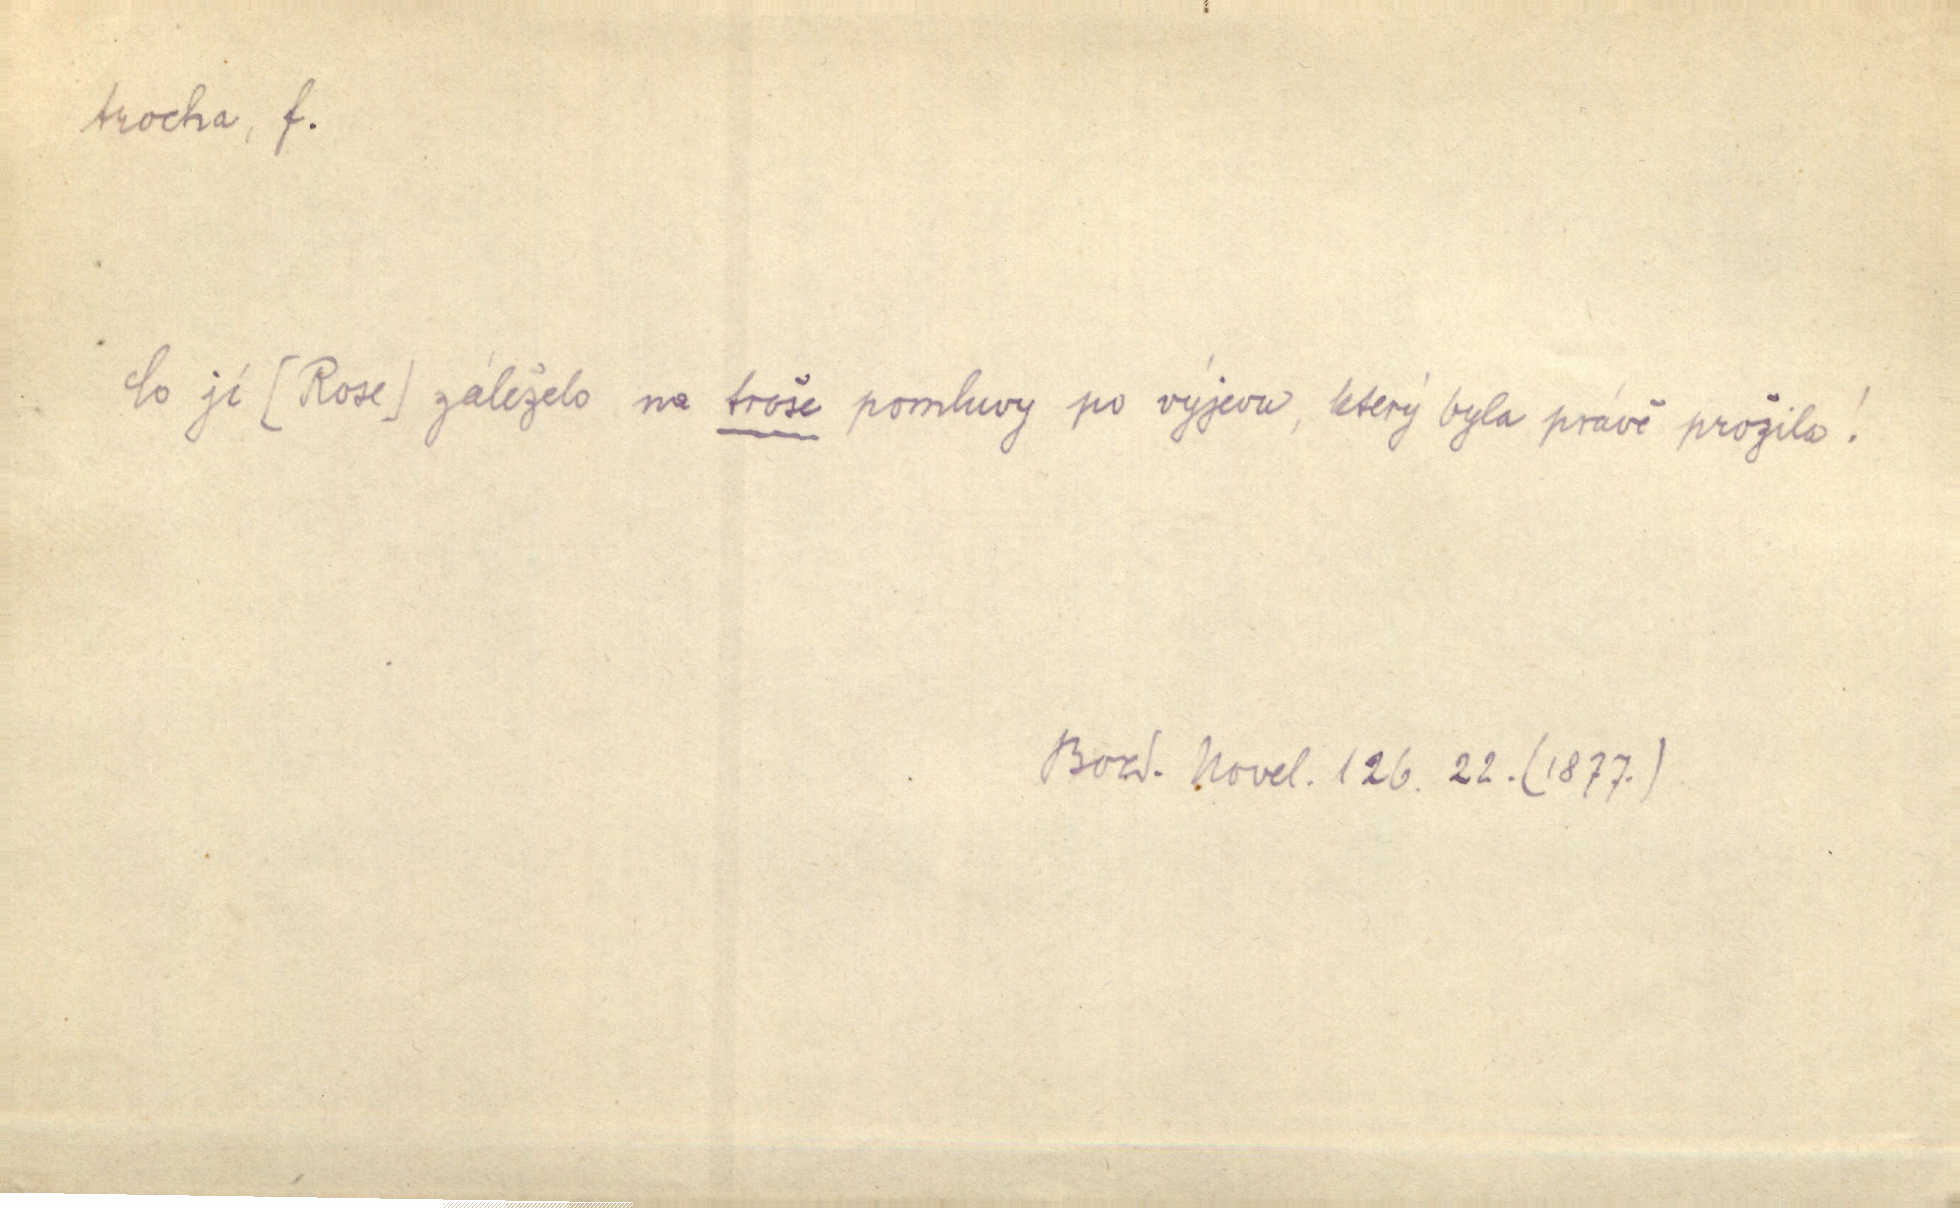 trocha, f.
Co jí [Rose] záleželo na troše pomluvy po výjevu, který byla právě prožila!
Novel. 126. 22. (1877.)